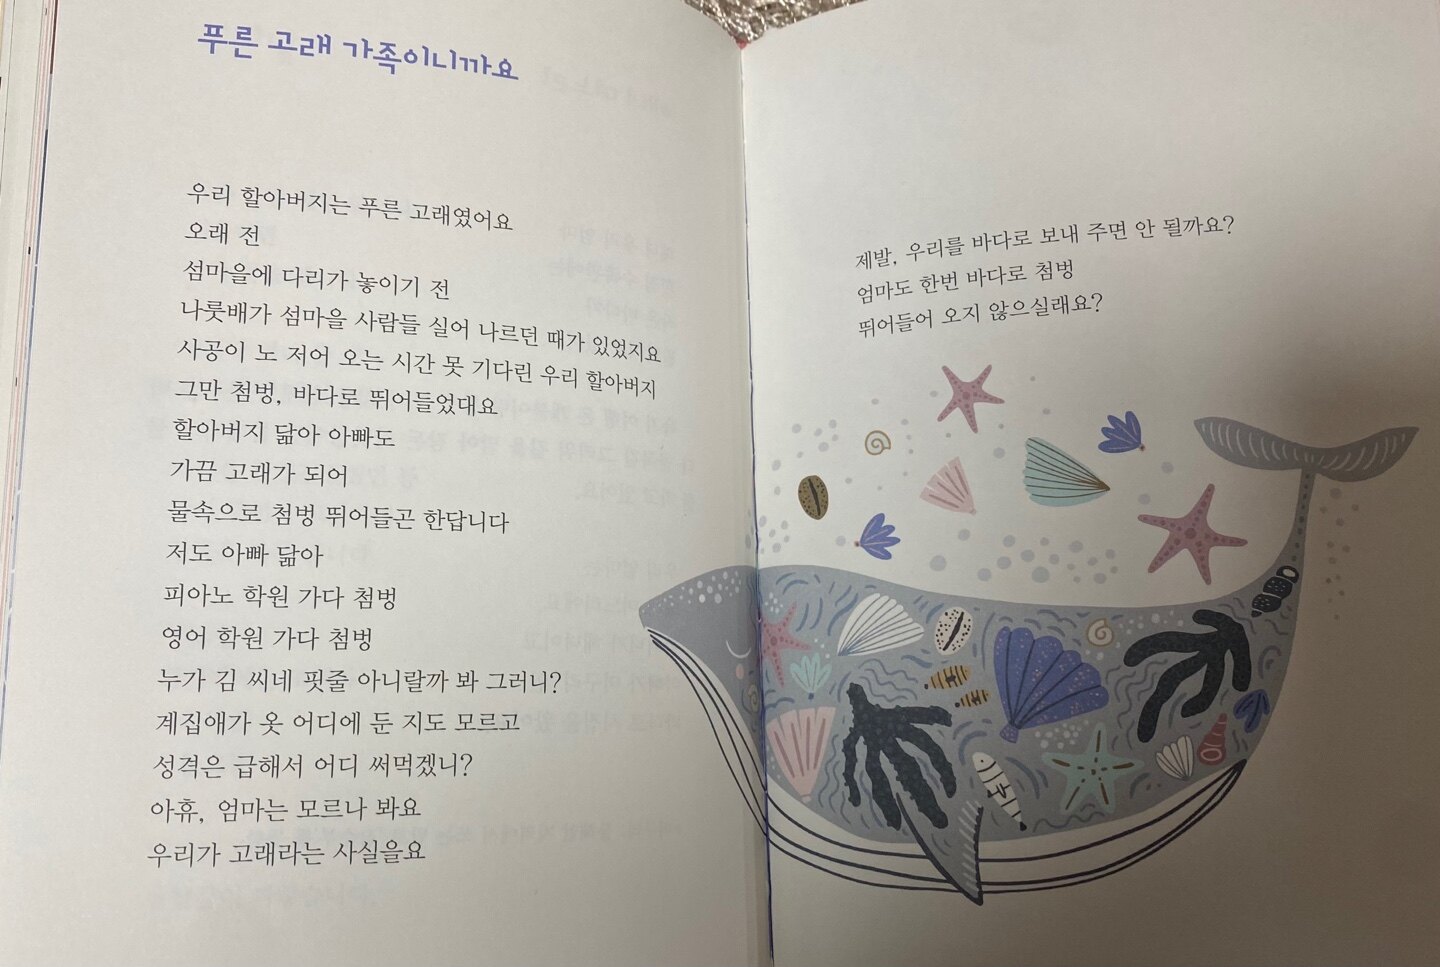 푸른 고래 가족이니까요
우리 할아버지는 푸른 고래였어요
오래 전
섬마을에 다리가 놓이기 전
나룻배가 섬마을 사람들 실어 나르던 때가 있었지요
사공이 노 저어 오는 시간 못 기다린 우리 할아버지
그만 첨벙, 바다로 뛰어들었대요
할아버지 닮아 아빠도
가끔 고래가 되어
물속으로 첨벙 뛰어들곤 한답니다
저도 아빠 닮아
피아노 학원 가다 첨벙
영어 학원 가다 첨벙
누가 김 씨네 핏줄 아니랄까 봐 그러니?
계집애가 옷 어디에 둔 지도 모르고
성격은 급해서 어디 써먹겠니?
아휴, 엄마는 모르나 봐요
우리가 고래라는 사실을요
제발, 우리를 바다로 보내 주면 안 될까요?
엄마도 한번 바다로 첨벙
뛰어들어 오지 않으실래요?